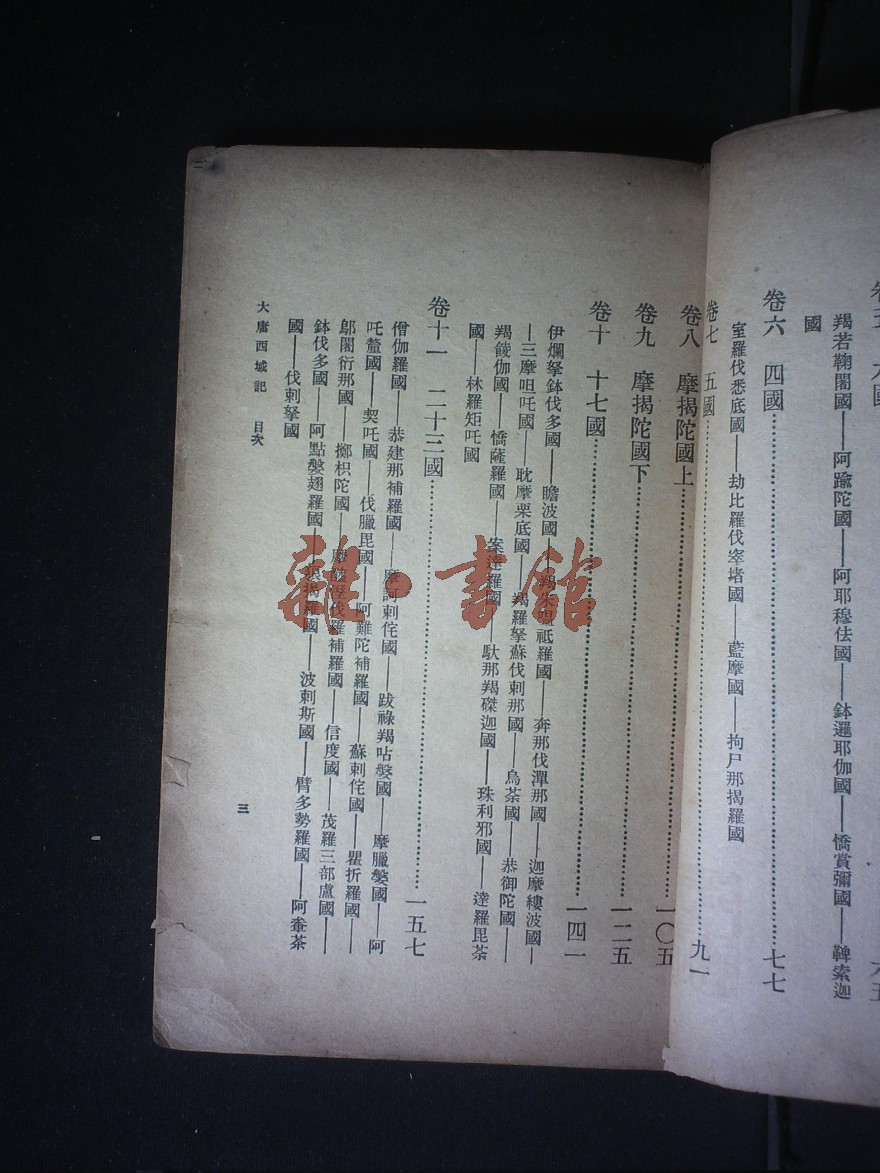 羯若鞠闍國——阿踰陀國——阿耶穆佉國——鉢邏耶伽國——憍賞彌國——鞞索迦
國
卷六　四國……七七
室羅伐悉底國——劫比羅伐窣堵國——藍摩國——拘尸那揭羅國
卷七　五國……九一
卷八　摩揭陀國上……一〇五
卷九　摩揭陀國下……一二五
卷十　十七國……一四一
伊爛拏鉢伐多國——瞻波國——羯朱嗢祗羅國——奔那伐潭那國——迦摩縷波國—
—三摩呾吒國——耽摩栗底國——羯羅拏蘇伐刺那國——烏荼國——恭御陀國——
羯䬆伽國——憍薩羅國——案達羅國——馱那羯磔迦國——珠利邪國——達羅毘荼
國——秣羅矩吒國
卷十一　二十三國……一五七
僧伽羅國——恭建那補羅國——摩訶刺侘國——跋祿羯呫婆國——摩臘婆國——阿
吒釐國——契吒國——伐臘毘國——阿難陀補羅國——蘇刺侘國——瞿折羅國——
鄔闍衍那國——擲枳陀國——摩醯溼伐羅補羅國——信度國——茂羅三部盧國——
鉢伐多國——阿點婆翅羅國——狼揭羅國——波刺斯國——臂多勢羅國——阿軬荼
國——伐刺拏國
大唐西域記　目次
三
雜·書館